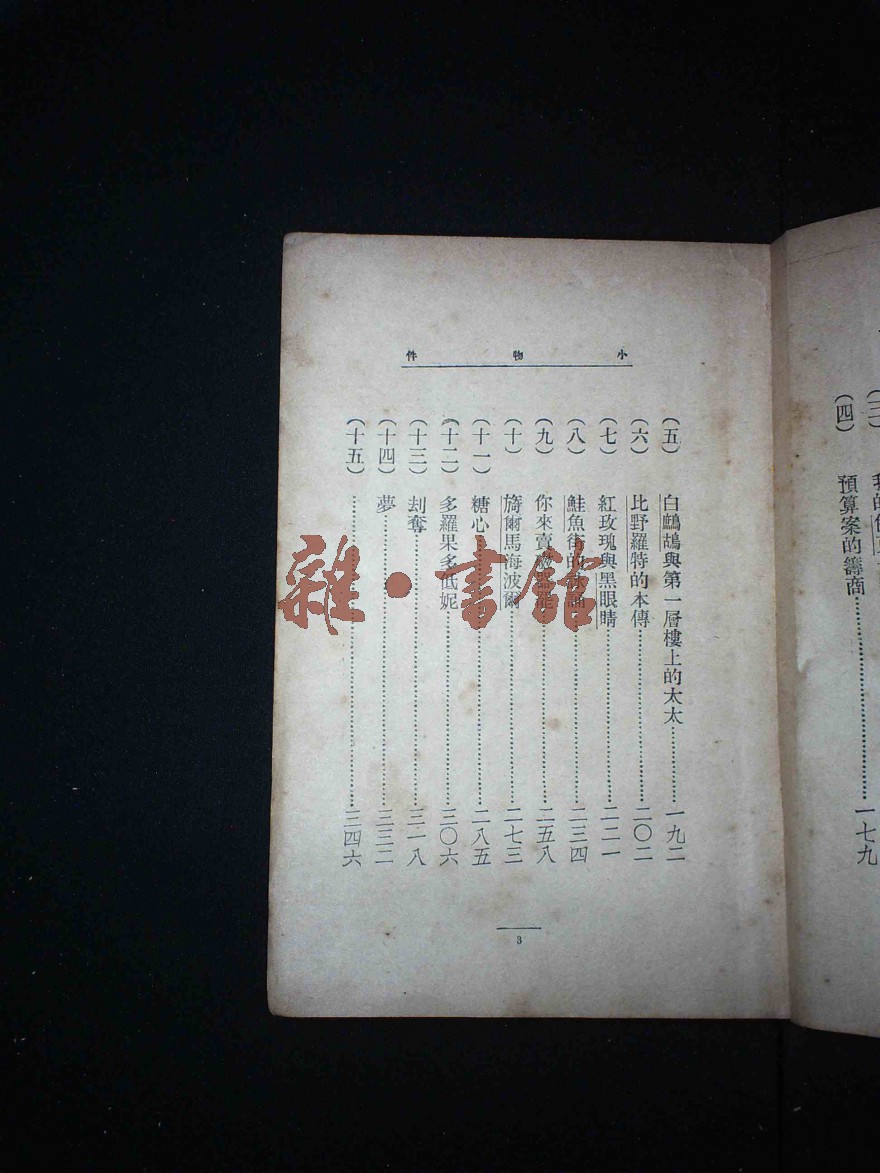 預算案的籌商……一七九
(四)
小物件
(五) 白鷓鴣與第一層樓上的太太……一九二
(六) 比野羅特的本傳……二〇二
(七) 紅玫瑰與黑眼睛……二二一
(八) 鮭魚街的詠誦……二三四
(九) 你來賣磁器罷……二五八
(十) 旖爾馬海波爾……二七三
(十一) 糖心……二八五
(十二) 多羅果多低妮……三〇六
(十三) 刦奪……三一八
(十四) 夢……三三二
(十五) ……三四六
3
雜·書館